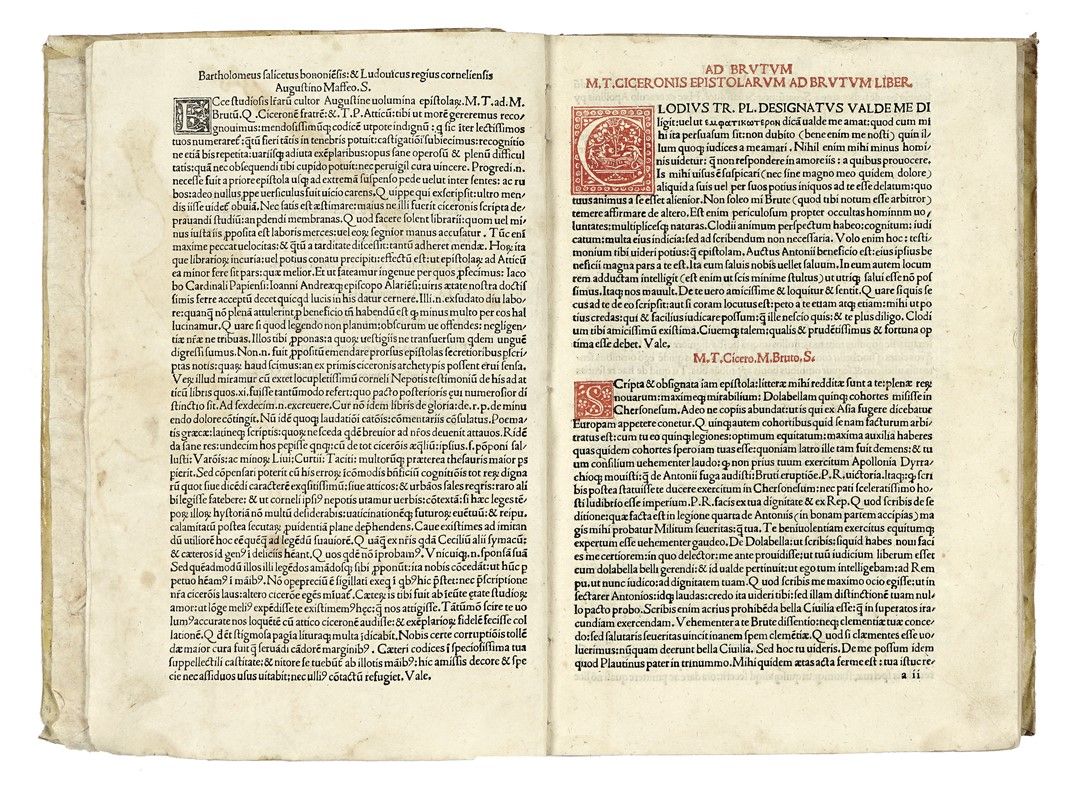 Bartholomeus salicetus bononiēsis: & Ludouicus regius corneliensis
Augustino Maffeo. S.
ECce studiosis lr̄arū cultor Augustine uolumina epistolaꝝ. M. T. ad. M.
Brutū. Q. Ciceronē fratrē: & T. P. Atticū: tibi ut morē gereremus reco/
gnouimus: mendosissimūqꝫ codicē utpote indignū: q sic iter lectissimos
tuos numeraret: qtū fieri tātis in tenebris potuit: castigatiōi subiecimus: recognitio
ne etiā bis repetita: uariisqꝫ adiuta exēplaribus: opus sane operosū & plenū difficul
tatis: quā nec obsequendi tibi cupido potuit: nec peruigil cura uincere. Progredi. n.
necesse fuit a priore epistola usqꝫ ad extremā suspenso pede uelut inter sentes: ac ru
bos: adeo nullus
dis iisse uidet obuiā. Nec satis ē æstimare: maius ne illi fuerit ciceronis scripta de/
prauandi studiū: an pdendi membranas. Q uod facere solent librarii: quom uel mi/
nus iusta iis pposita est laboris merces: uel eoꝝ segnior manus accusatur. Tūc eni
maxime peccat uelocitas: & qtū a tarditate discessit: tantū adheret mendæ. Hoꝝ ita
que librarioꝝ incuria: uel potius conatu precipiti: effectū est: ut epistolaꝝ ad Atticū
ea minor fere sit pars: quæ melior. Et ut fateamur ingenue per quos psecimus: Iaco
bo Cardinali Papiensi: Ioanni Andreæqꝫ episcopo Alariēsi: uiris ætate nostra doctis
simis ferre acceptū decet quicqd lucis in his datur cernere. Illi. n. exsudato diu labo/
re: quanq nō plenā attulerint: p beneficio tn̄ habendū est qꝫ minus multo per eos hal
lucinamur. Q uare si quod legendo non planum: obscurum ue offendes: negligen/
tiæ nr̄æ ne tribuas. Illos tibi pponas: a quoꝝ uestigiis ne transuersum qdem unguē
digressi sumus. Non. n. fuit ppositū emendare prorsus epistolas secretioribus
ptas notis: quaꝝ haud scimus: an ex primis ciceronis archetypis possent erui sensa.
Veꝝ illud miramur cū extet locupletissimū corneli Nepotis testimoniū de his ad at
ticū libris quos. xi. fuisse tantūmodo refert: quo pacto posteriores eui numerosior di
stinctio sit. Ad sexdecim. n. excreuere. Cur nō idem libris de gloria: de. r. p. de minu
endo dolore cōtingit. Nū idē quoqꝫ laudatiōi catōis: cōmentariis cōsulatus. Poema/
tis græcæ: latineqꝫ scriptis: quoꝝ ne sceda qdē breuior ad nr̄os deuenit attauos. Ridē
da sane res: undecim hos pepisse
lusti: Varōis: ac minoꝝ Liui: Curtii: Taciti: multorūqꝫ præterea thesauris maior ps
pierit. Sed cōpensari poterit cū his erroꝝ: icōmodis bn̄ficiū cognitiōis tot reꝝ digna
rū quot siue dicēdi caracterē exqsitissimū: siue atticos: & urbāos sales reqris: raro ali
bi legisse fatebere: & ut corneli ipsi⁹ nepotis utamur uerbis: cōtextā: si hæc leges tē/
poꝝ illoꝝ hystoriā nō multū desiderabis: uaticinationēqꝫ futuroꝝ: euētuū: & reipu.
calamitatū postea secutaꝝ, puidentiā plane dep̄hendens. Caue existimes ad imitan
dū utiliorē hoc eē quēqꝫ ad legēdū suauiorē. Q uāqꝫ ex nr̄is qdā Ceciliū alii symacū:
& cæteros id gen⁹ i deliciis hēant. Q uos qdē nō iprobam⁹. Vnicuiqꝫ. n. sponsā suā
Sed quēadmodū illos illi legēdos amādosqꝫ sibi pponūt: ita nobis cōcedāt: ut hūc p
petuo hēam⁹ i māib⁹. Nō opepreciū ē sigillati exeq i qb⁹ hic pstet: nec pscriptione
nr̄a ciceronis laus: altero cicerōe egēs
amor: ut lōge meli⁹ expēdisse te existimem⁹ hęc: q nos attigisse. Tātūmō scire te uo
lum⁹ accurate nos loquētē cū attico ciceronē audisse: & exēplarioꝝ fidelē fecisse col
lationē. Q d ēt stigmosa pagia lituraqꝫ multa idicabit. Nobis certe corruptiōis tollē
dæ maior cura fuit q seruādi cādorē marginib⁹. Cæteri codices i speciosissima tua
suppellectili castitate: & nitore se tuebūt ab illotis māib⁹: hic amissis decore & spe
cie nec assiduos usus uitabit: nec ulli⁹ cōtactū refugiet. Vale.
AD BRVTVM
M. T. CICERONIS EPISTOLARVM AD BRVTVM LIBER.
CLODIVS TR. PL. DESIGNATVS VALDE ME DI
ligit: uel ut ἐμφατικωτερον dicā ualde me amat: quod cum mi
hi ita persuasum sit: non dubito (bene enim me nosti) quin il/
lum quoqꝫ iudices a me amari. Nihil enim mihi minus homi/
nis uidetur: q non respondere in amore iis: a quibus prouocere.
Is mihi uisus ē suspicari (nec sine magno meo quidem dolore)
aliquid a suis uel per suos potius iniquos ad te esse delatum: quo
tuus animus a se esset alienior. Non soleo mi Brute (quod tibi notum esse arbitror)
temere affirmare de altero. Est enim periculosum propter occultas hominnm uo/
luntates: multiplicesqꝫ naturas. Clodii animum perspectum habeo: cognitum: iudi
catum: multa eius indicia: sed ad scribendum non necessaria. Volo enim hoc: testi/
monium tibi uideri potius: q epistolam. Auctus Antonii beneficio est: eius ipsius be
neficii magna pars a te est. Ita eum saluis nobis uellet saluum. In eum autem locum
rem adductam intelligit (est enim ut scis minime stultus) ut utriqꝫ salui esse nō pos
simus. Itaqꝫ nos mauult. De te uero amicissime & loquitur & sentit. Q uare si quis se
cus ad te de eo scripsit: aut si coram locutus est: peto a te etiam atqꝫ etiam: mihi ut po
tius credas: qui & facilius iudicare possum: q ille nescio quis: & te plus diligo. Clodi
um tibi amicissimū existima. Ciuemqꝫ talem: qualis & prudētissimus & fortuna op
tima esse debet. Vale.
M. T. Cicero. M. Bruto. S.
SCripta & obsignata iam epistola: litteræ mihi redditæ sunt a te: plenæ reꝝ
nouarum: maximeqꝫ mirabilium: Dolabellam quinqꝫ cohortes misisse in
Chersonesum. Adeo ne copiis abundat: ut is qui ex Asia fugere dicebatur
Europam appetere conetur. Q uinqꝫ autem cohortibus quid se nam facturum arbi/
tratus est: cum tu eo quinqꝫ legiones: optimum equitatum: maxima auxilia haberes
quas quidem cohortes spero iam tuas esse: quoniam latro ille tam fuit demens: & tu
um consilium uehementer laudo: q non prius tuum exercitum Apollonia Dyrra/
chioqꝫ mouisti: q de Antonii fuga audisti: Bruti eruptiōe. P. R. uictoria. Itaqꝫ: q scri
bis postea statuisse te ducere exercitum in Chersonesum: nec pati sceleratissimo ho/
sti ludibrio esse imperium. P. R. facis ex tua dignitate & ex Rep. Q uod scribis de se
ditione: quæ facta est in legione quarta de Antoniis (in bonam partem accipies) ma
gis mihi probatur Militum seueritas: q tua. Te beniuolentiam exercitus equitumqꝫ
expertum esse uehementer gaudeo. De Dolabella: ut scribis: siquid habes noui faci
es me certiorem: in quo delector: me ante prouidisse: ut tuū iudicium liberum esset
cum dolabella belli gerendi: & id ualde pertinuit: ut ego tum intelligebam: ad Rem
pu. ut nunc iudico: ad dignitatem tuam. Q uod scribis me maximo ocio egisse: ut in
sectarer Antonios: idqꝫ laudas: credo ita uideri tibi: sed illam distinctionē tuam nul/
lo pacto probo. Scribis enim acrius prohibēda bella Ciuilia esse: q in superatos ira/
cundiam exercendam. Vehementer a te Brute dissentio: neqꝫ clementiæ tuæ conce/
do: sed salutaris seueritas uincit inanem spem clemētiæ. Q uod si clæmentes esse uo/
luerimus: nūquam deerunt bella Ciuilia. Sed hoc tu uideris. De me possum idem
quod Plautinus pater in trinummo. Mihi quidem ætas acta ferme est: tua istuc re/
a ii